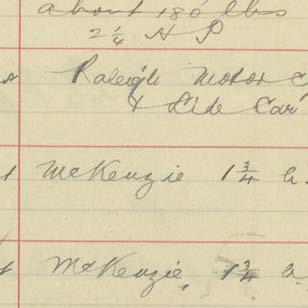 about 180 lbs
2 1/4 H P
Raleigh Motor
& Side Car
McKenzie 1 3/4 h.
McKenzie, 1 3/4 h